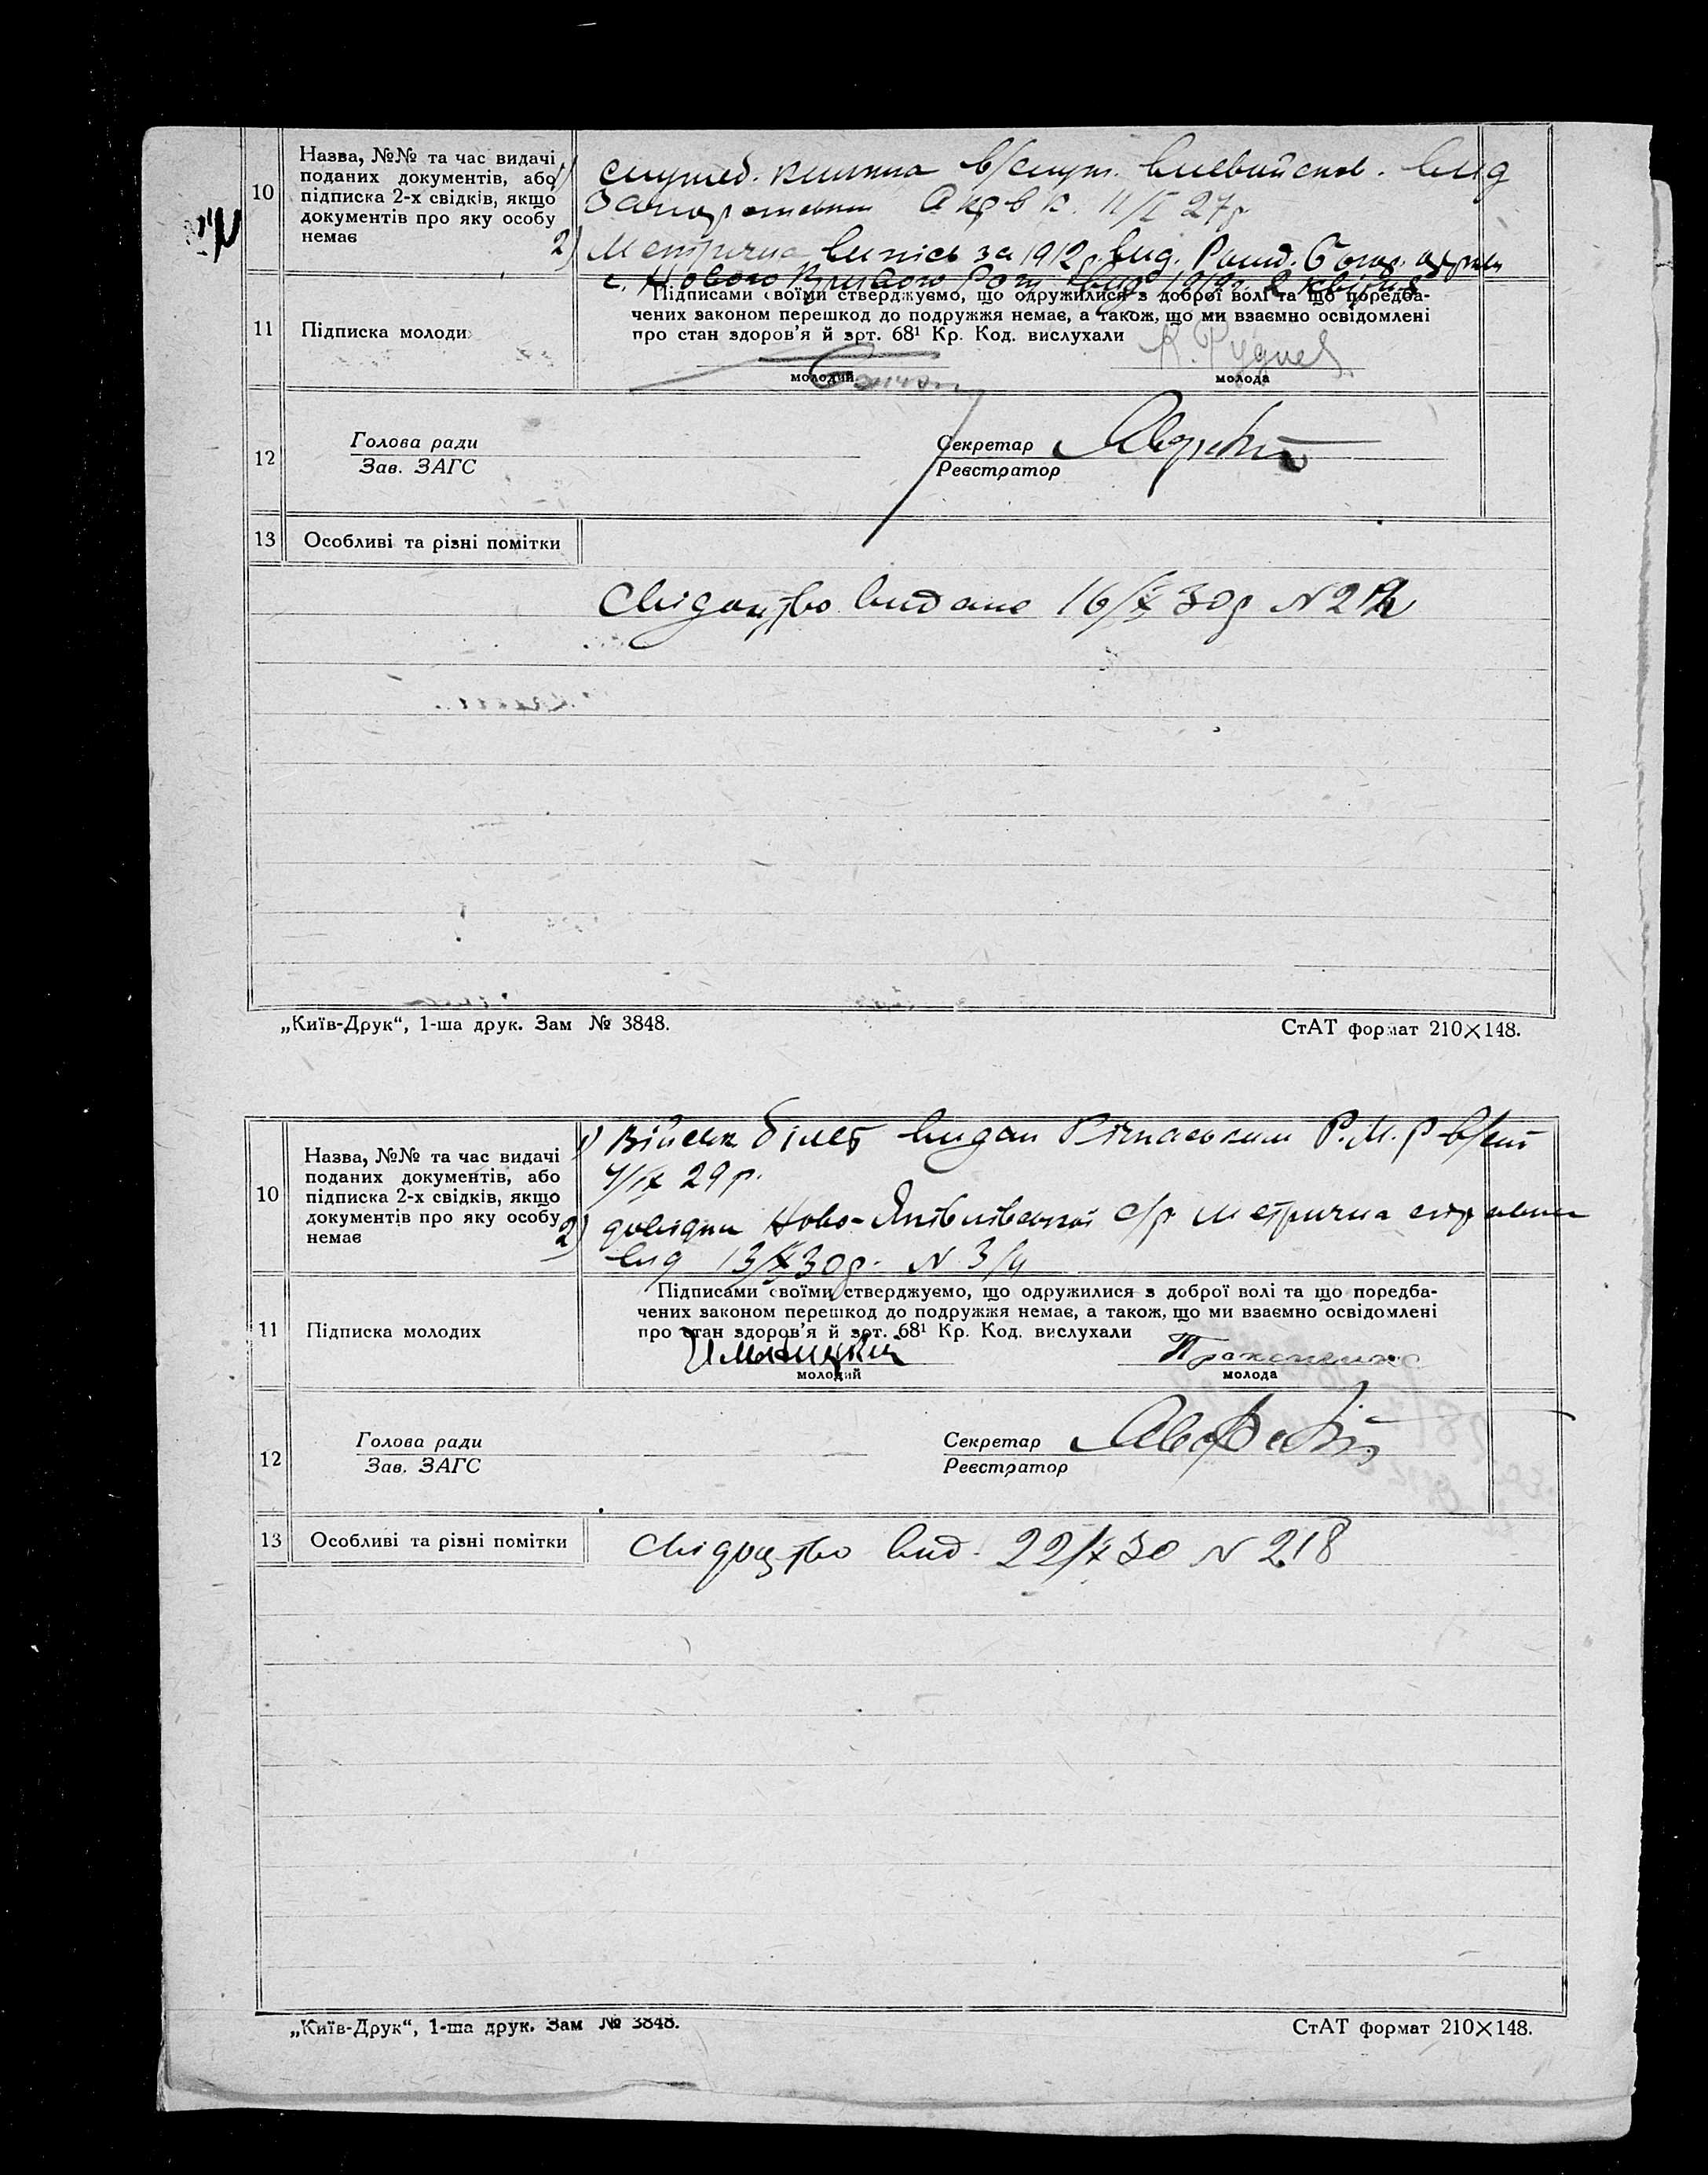 10
Назва, №№ та час видачі
поданих документів, або
підписка 2-х свідків, якщо
документів про яку особу
немає
1) служб. книжка в/служ. вневійсков. вид
Запоріжським Окрвк. 11/I 27р
2) Метрична випісь за 1912 р. вид. Рожд. Богор. церкви
с. Нового Кривого Рогу вид 1919 р. 2 квітня
11
Підписка молодих
Підписами своїми стверджуємо, що одружилися з доброї волі та що поредба-
чених законом перешкод до подружжя немає, а також, що ми взаємно освідомлені
про стан здоров'я й арт. 68¹ Кр. Код. вислухали
К. Руднев
молодий
молода
12
Голова ради
Зав. ЗАГС
Секретар
Реєстратор
13
Особливі та різні помітки
Свідоцтво видане 16/X 30р N 212
„Київ-Друк“, 1-ша друк. Зам № 3848.
СтАТ формат 210×148.
10
Назва, №№ та час видачі
поданих документів, або
підписка 2-х свідків, якщо
документів про яку особу
немає
1) Військ білет видан Р.М.Р
4/IX 29 р.
2) довідка Ново-Яківлівської с/р метрична
вид 13/X 30р. N 3/4
11
Підписка молодих
Підписами своїми стверджуємо, що одружилися з доброї волі та що поредба-
чених законом перешкод до подружжя немає, а також, що ми взаємно освідомлені
про стан здоров'я й арт. 68¹ Кр. Код. вислухали
молодий
молода
12
Голова ради
Зав. ЗАГС
Секретар
Реєстратор
13
Особливі та різні помітки
Свідоцтво вид. 22/X 30 N 218
„Київ-Друк“, 1-ша друк. Зам № 3848.
СтАТ формат 210×148.